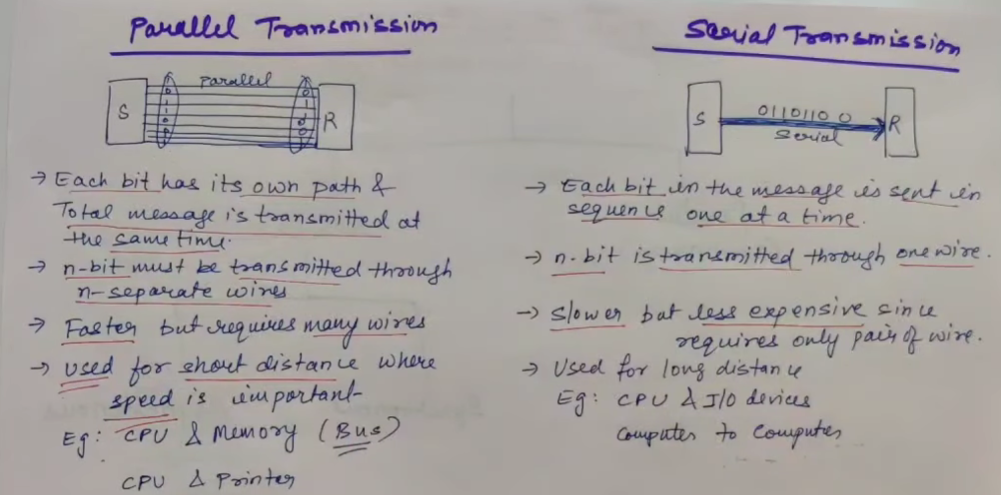 Parallel Transmission
S
Parallel
R
→ Each bit has its own path &
Total message is transmitted at
the same time.
→ n-bit must be transmitted through
n-separate wires
→ Faster but requires many wires
→ used for short distance where
speed is important
Eg: CPU & Memory (Bus)
CPU & Printer
Serial Transmission
S
0110110 0
Serial
R
→ Each bit in the message is sent in
sequence one at a time.
→ n-bit is transmitted through one wire.
→ Slower but less expensive since
requires only pair of wire.
→ Used for long distance
Eg: CPU & I/O devices
Computer to Computer